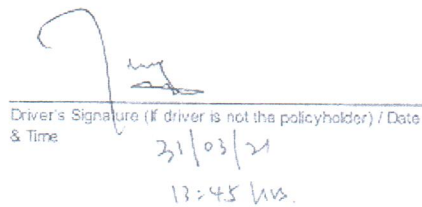 Driver's Signature (If driver is not the policyholder) / Date
& Time
31/03/21
13:45 hrs.